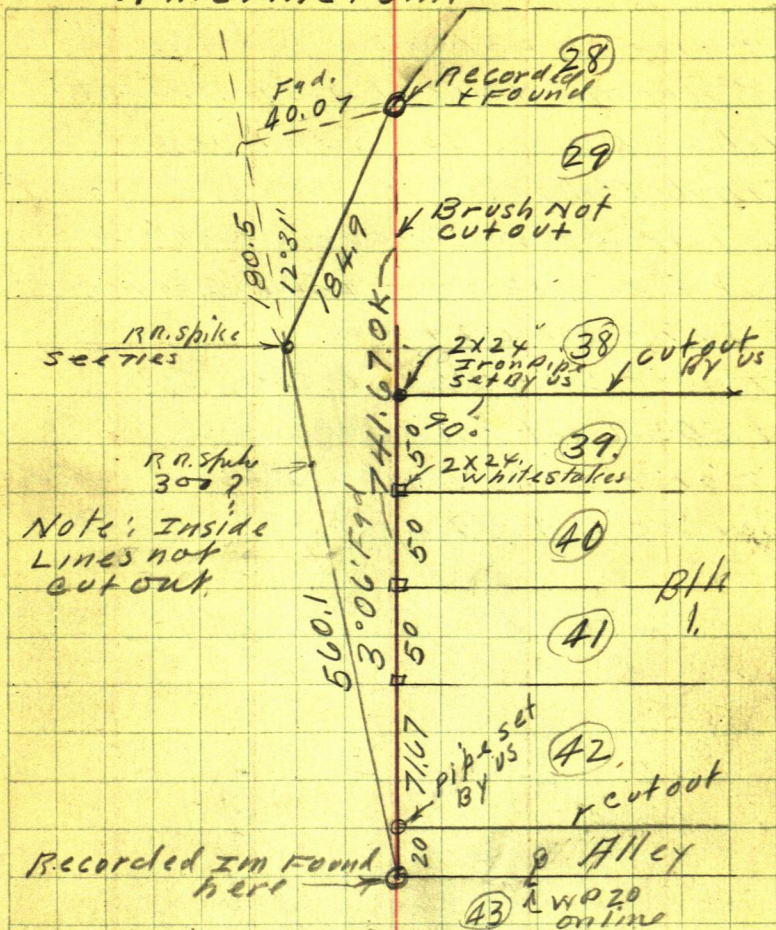 28
Recorded
+ Found
Fqd.
40.07
29
Brush Not
cut out
180.5
12°31'
184.9
RR. Spike
see ties
741.67.OK
2x24"
Iron Pipe
set By us
38
cut out
By us
90°
50
39.
2x24.
White stakes
RR. Spike
300?
Note: Inside
Lines not
cut out.
3°06' Fqd
560.1
50
40
Blk
1.
50
41
71.67
Pipe set
By us
42
cut out
20
Alley
Recorded Im Found
here
43
WP 20
on line